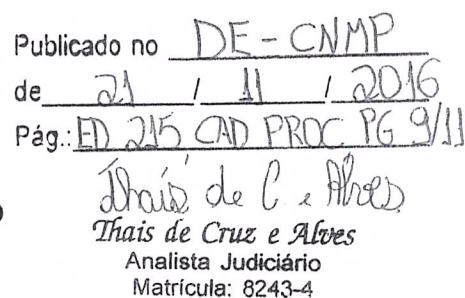 Publicado no DE - CNMP
de 21 / 11 / 2016
Pág.: ED 215 CAD PROC PG 9/11
Thais de C. e Alves
Thais de Cruz e Alves
Analista Judiciário
Matrícula: 8243-4